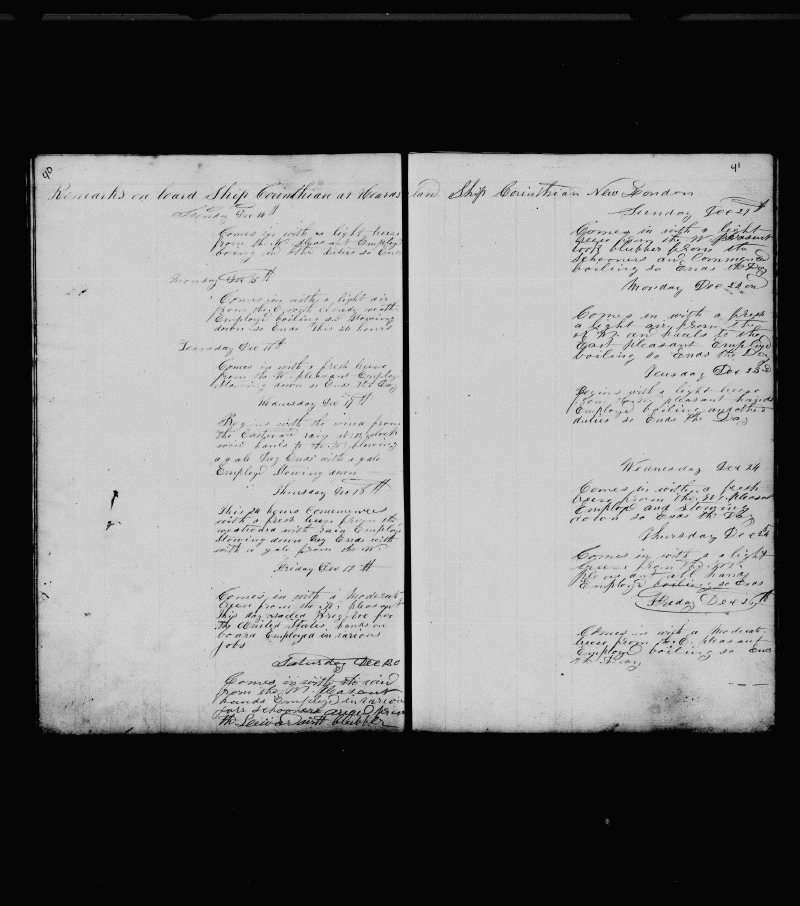 40
Remarks on board Ship Corinthian at Heards
Sunday Dec 14th
Comes in with a light breeze
from the W pleasant Employd
boiling in other duties so Ends
Monday Dec 15th
Comes in with a light air
from the cloudy with
Employd boiling and Stowing
down so Ends This 24 hours
Dec 16th
Comes in with a fresh breeze
from the W pleasant Employd
Stowing down so Ends the Day
Wednesday Dec 17th
Begins with the wind from
the Eastward
wind hauls to the W blowing
a gale Day Ends with a gale
Employd Stowing down
Thursday Dec 18th
This 24 hours Commences
with a fresh breeze from the
westward with Employd
Stowing down Day Ends with
with a gale from the W
Friday Dec 19th
Comes in with a Moderate
breeze from the W, pleasant
this day sailed Brig for
the United States, hands on
board Employed in various
jobs
Saturday Dec 20
Comes in with the wind
from the W pleasant
hands Employd in various
jobs Schooners
the with blubber
41
land Ship Corinthian New London
Sunday Dec 21st
Comes in with a light
breeze from the W pleasant
took blubber from the
Schooners and Commenced
boiling so Ends the Day
Monday Dec 22nd
Comes in with a fresh
a light air from the
of W an hauls to the
East pleasant Employd
boiling so Ends the Day
Tuesday Dec 23d
Begins with a light breeze
from pleasant hands
Employd boiling and other
duties so Ends the Day
Wednesday Dec 24
Comes in with a fresh
breeze from the W pleasant
Employd and Stowing
down so Ends the Day
Thursday Dec 25
Comes in with a light
breeze from the
pleasant all hands
Employd boiling so Ends
Friday Dec 26th
Comes in with a Moderate
breeze from the pleasant
Employd boiling so Ends
the Day